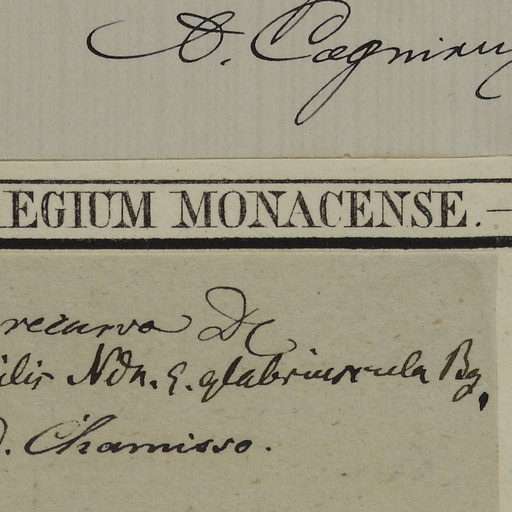 A. Cogniaux
EGIUM MONACENSE.—
recurva DC
ilis Ndn. ς. glabriuscula Bg,
D. Chamisso.